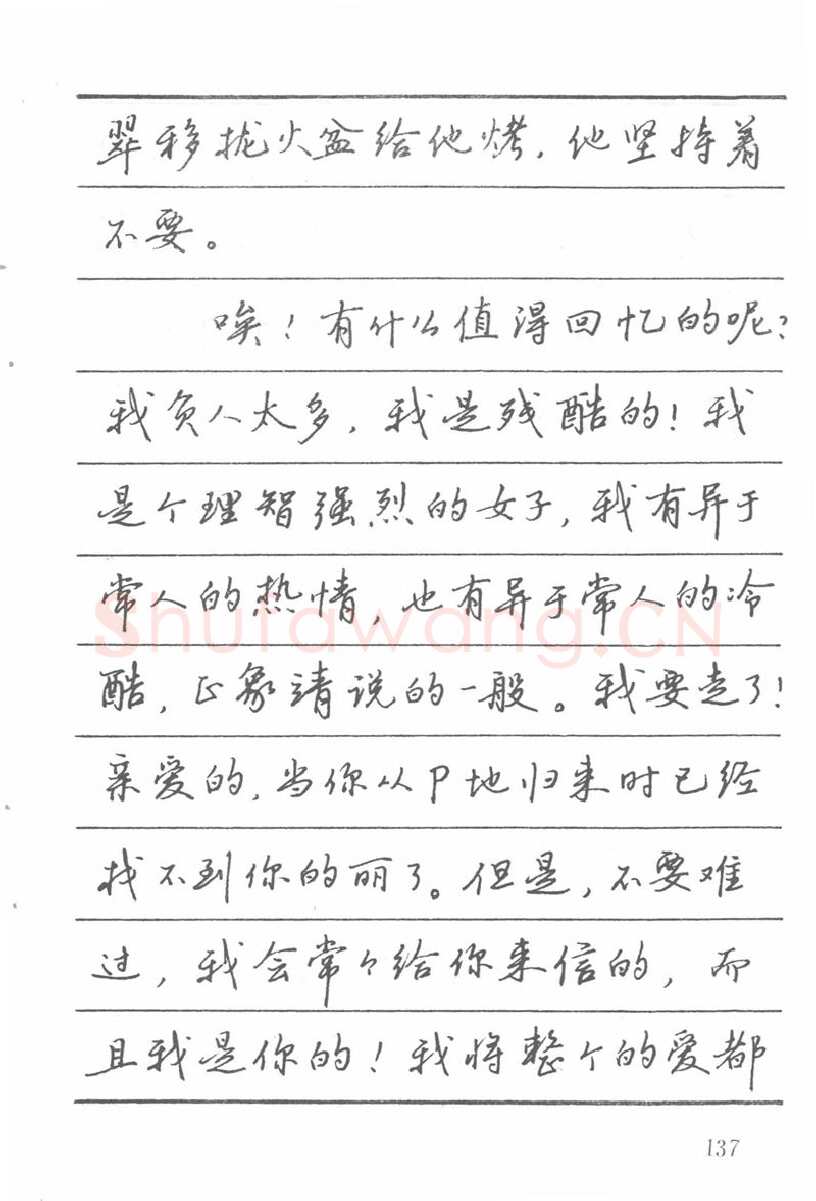 翠移拢火盆给他烤，他坚持着
不要。
唉！有什么值得回忆的呢？
我负人太多，我是残酷的！我
是个理智强烈的女子，我有异于
常人的热情，也有异于常人的冷
酷，正象请说的一般。我要走了！
亲爱的，当你从P地归来时已经
找不到你的丽了。但是，不要难
过，我会常々给你来信的，而
且我是你的！我将整个的爱都
shufawang.CN
137